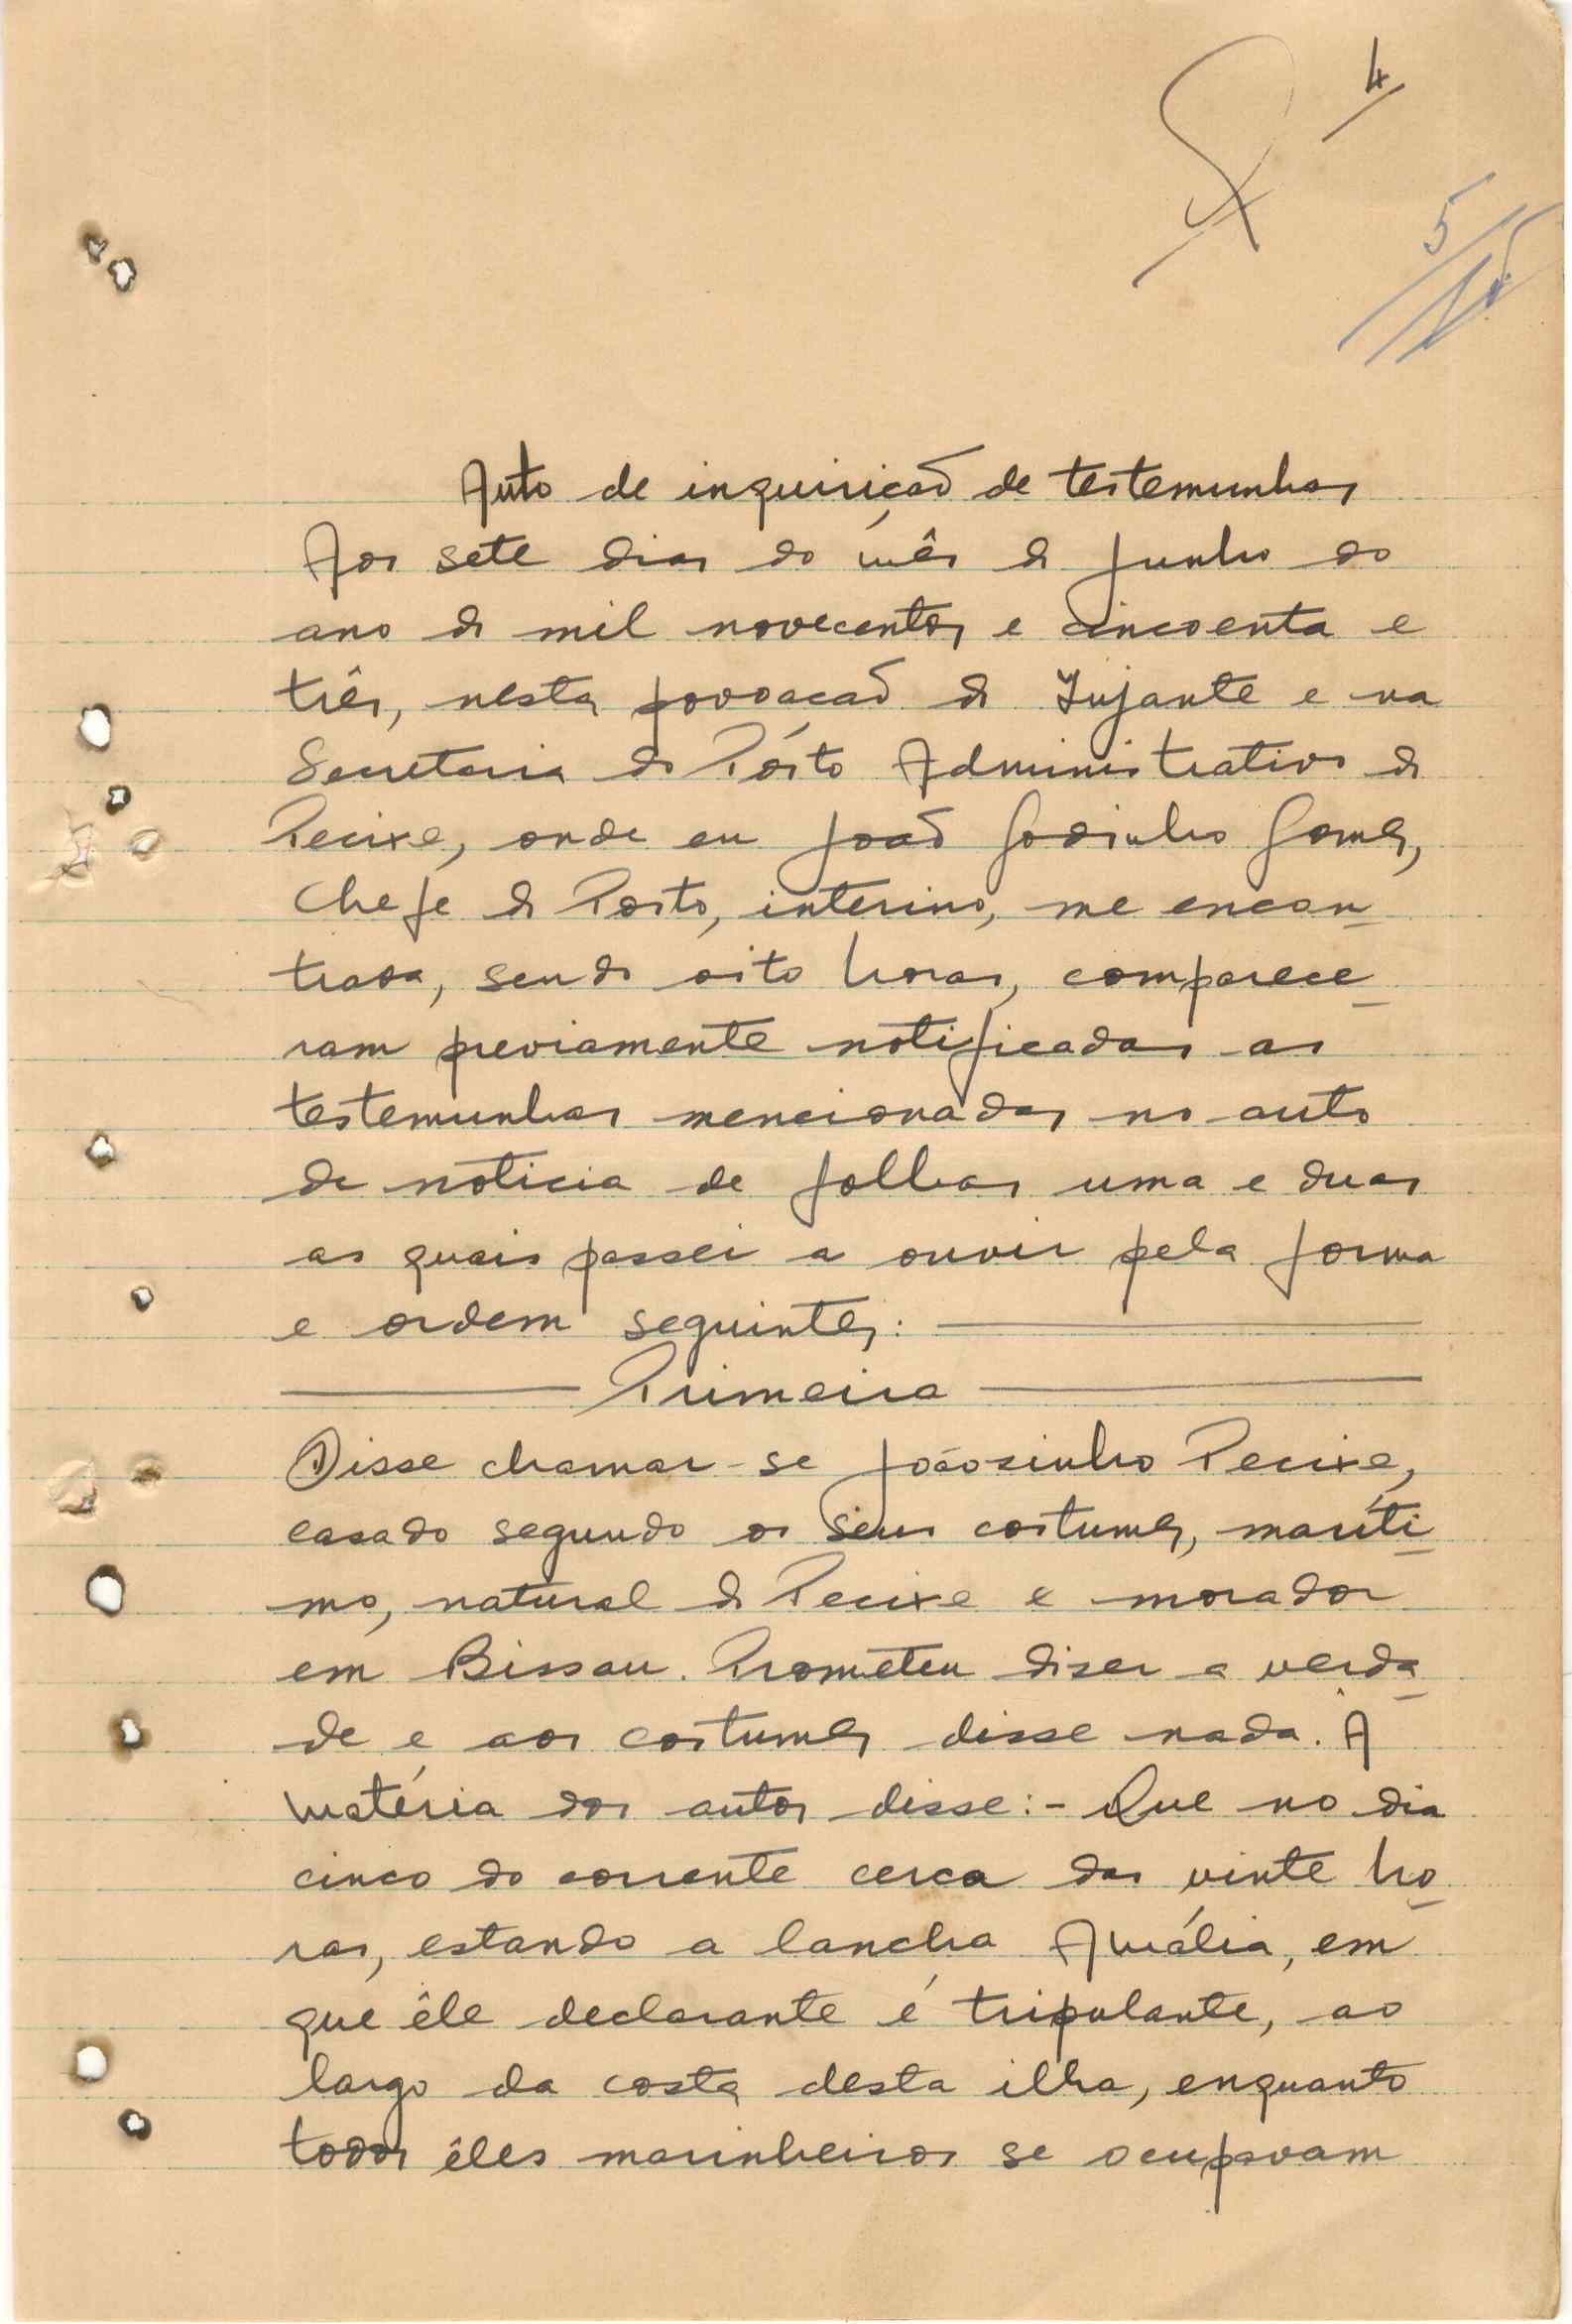 4
5
Auto de inquirição de testemunhas
Aos sete dias do mês de Junho do
ano de mil novecentos e cincoenta e
três, nesta povoação de Jujante e na
Secretaria do Pôsto Administrativo de
Pecixe, onde eu João Godinho Gomes,
Chefe de Posto, interino, me encon-
trava, sendo oito horas, comparece-
ram previamente notificadas as
testemunhas mencionadas no auto
de noticia de folhas uma e duas
as quais passei a ouvir pela forma
e ordem seguintes:
Primeira
Disse chamar-se Joãosinho Pecixe,
casado segundo os seus costumes, maríti-
mo, natural de Pecixe e morador
em Bissau. Prometeu diser a verda-
de e aos costumes disse nada. Á
matéria dos autos disse:- Que no dia
cinco do corrente cerca das vinte ho-
ras, estando a lancha Amália, em
que êle declarante é tripulante, ao
largo da costa desta ilha, enquanto
todos êles marinheiros se ocupavam